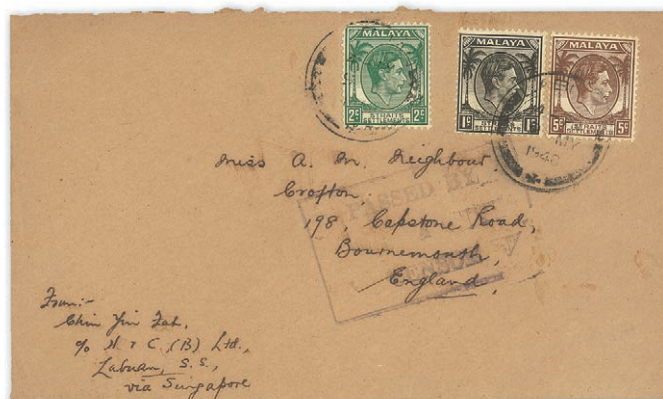 MALAYA
2c 2c
STRAITS
SETTLEMENTS
MALAYA
1c 1c
STRAITS
SETTLEMENTS
MALAYA
5c 5c
STRAITS
SETTLEMENTS
MY
1940
Miss A. M. Neighbour
Crofton.
198, Capstone Road,
Bournemouth,
England,
PASSED BY
From:-
Chin Yin Fah,
c/o H & C. (B) Ltd.,
Labuan, S.S.,
via Singapore